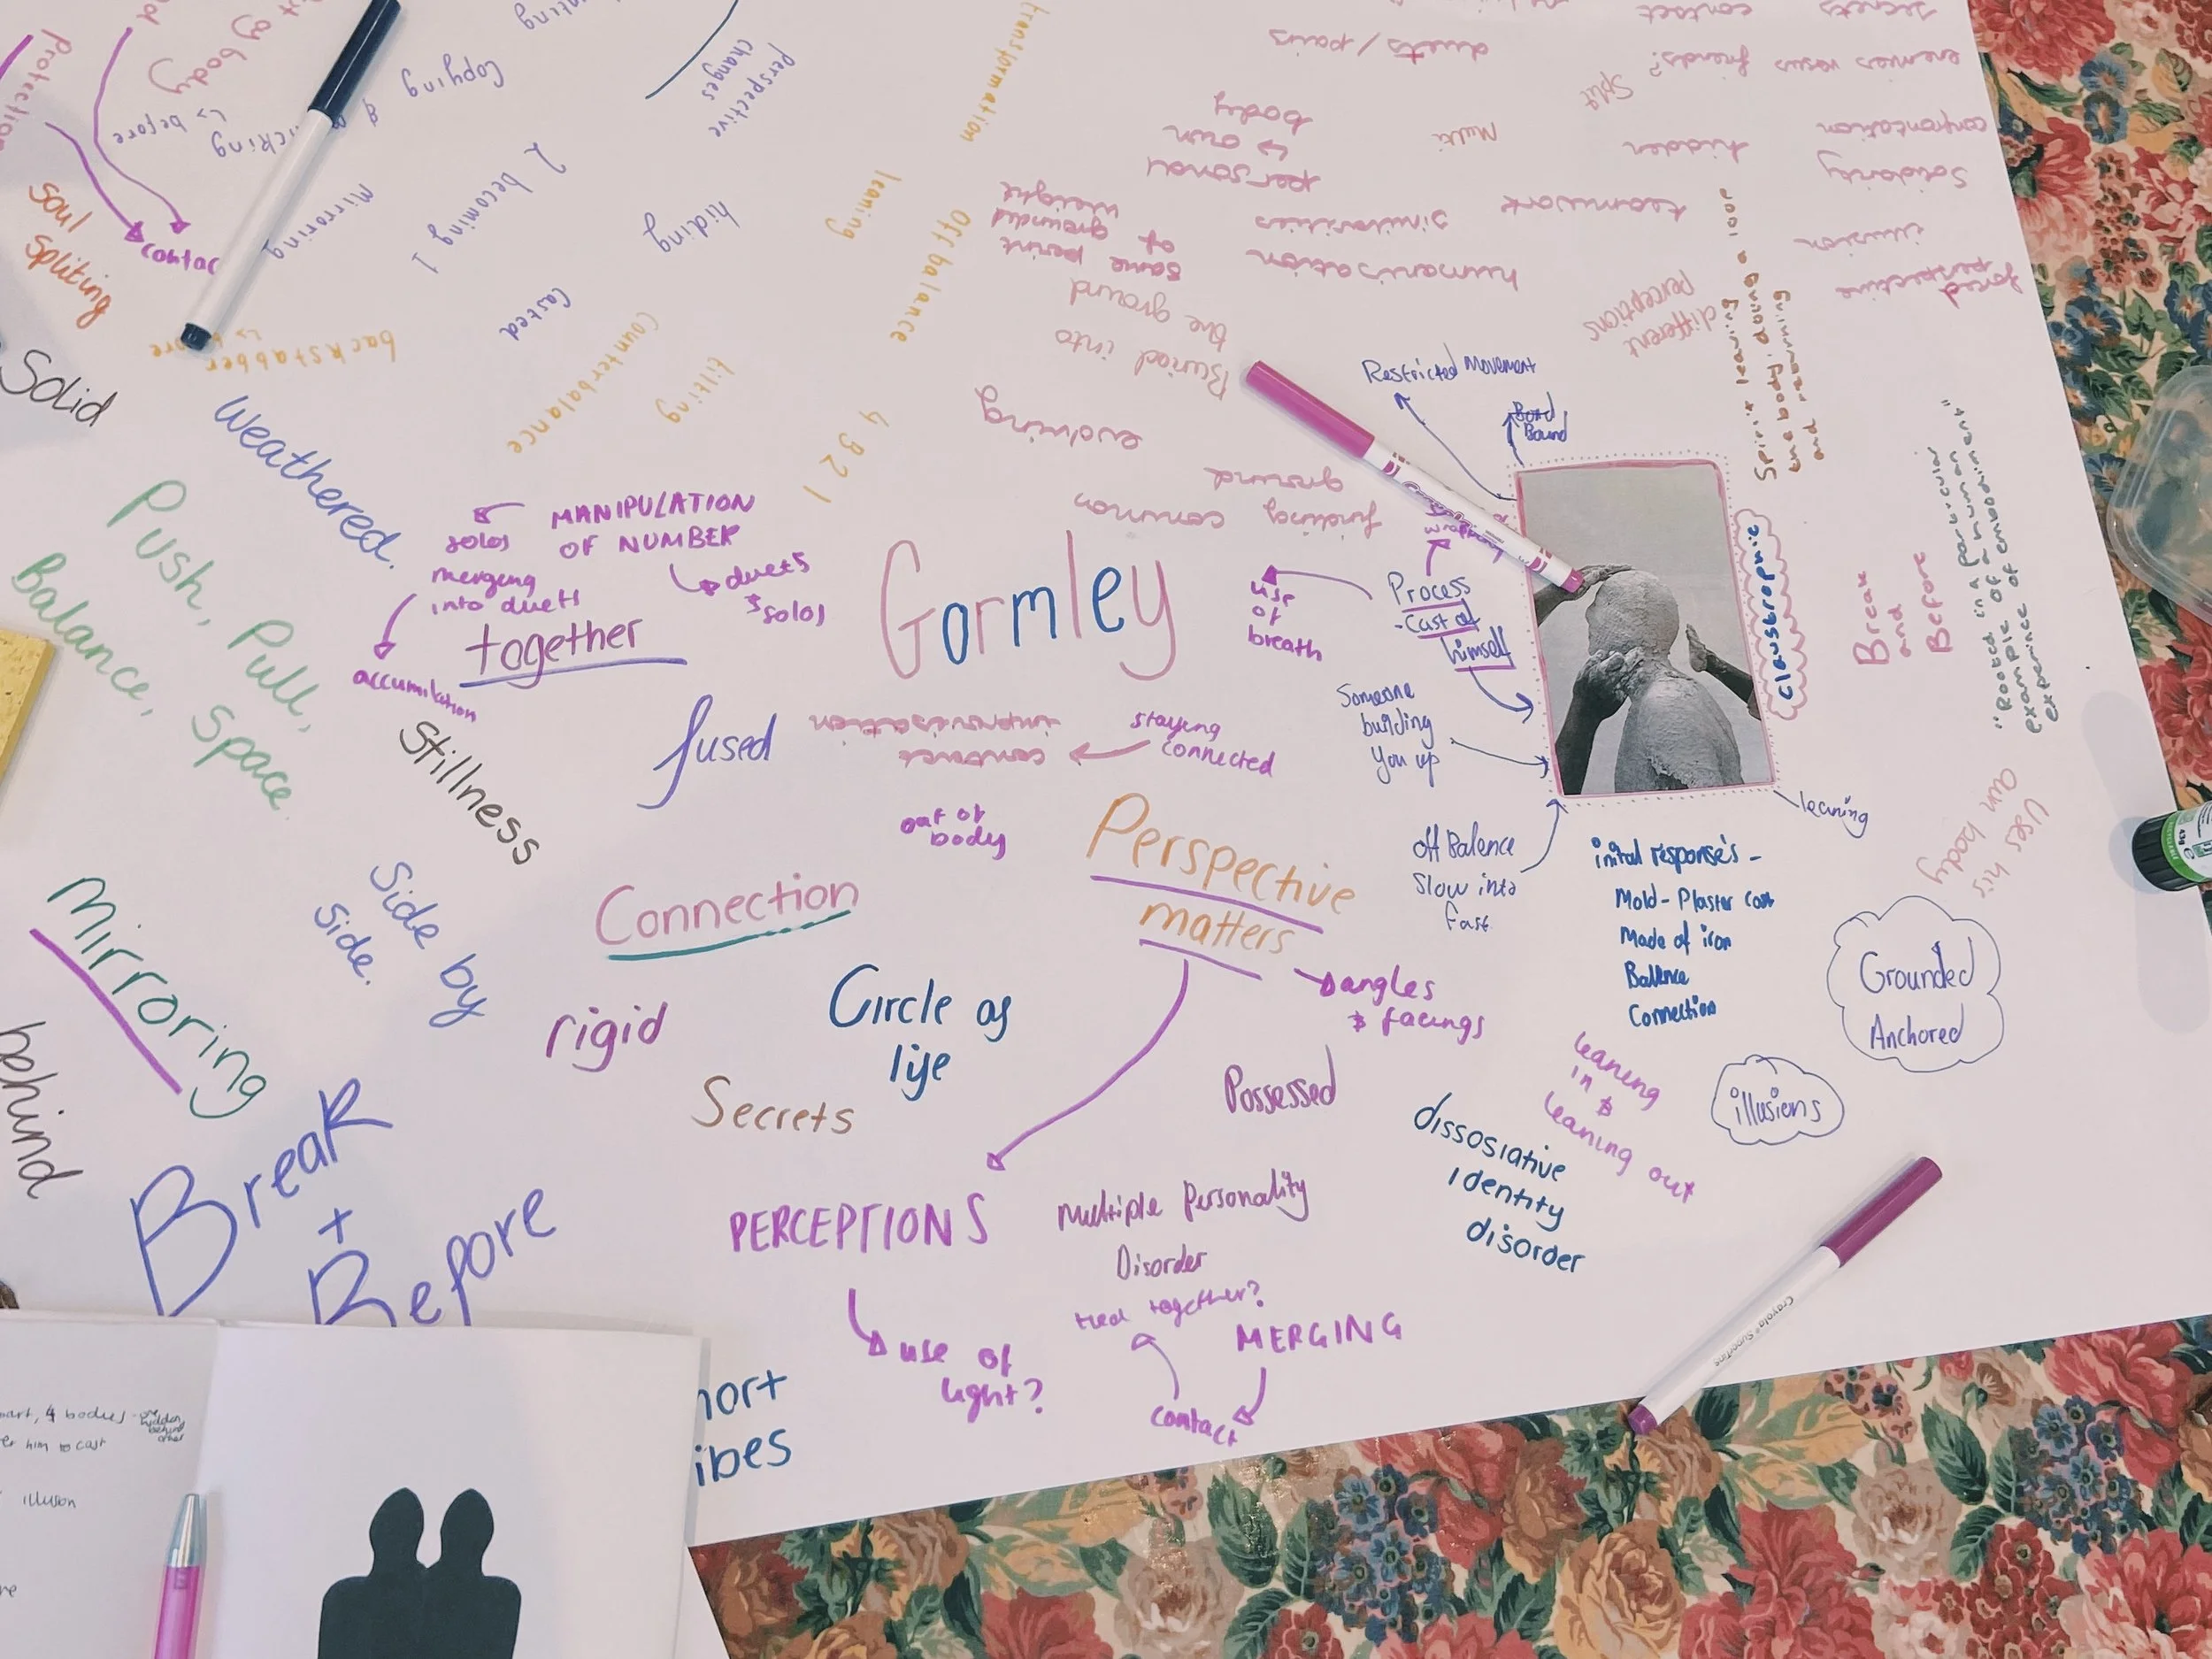 Protection
of body
Copying
↳ before
Mirroring
2 becoming 1
Perspective
changes
hiding
Casted
transformation
leaning
Off balance
Counterbalance
tilting
4 3 2 1
backstabber
Soul
Spliting
Solid
Weathered.
Push, Pull,
Balance, Space.
secrets
contact
enemies
friends?
duets/pairs
Split
confrontation
hidden
Multi
Solidarity
teamwork
personal
↳ own
body
illusion
similarities
humanisation
same point
of grounded
weight
forced
perspective
different
perceptions
Buried into
the ground
evolving
finding common
ground
Spirit leaving
the body, doing a loop
and returning
Restricted Movement
Bond
Bound
MANIPULATION
OF NUMBER
solos
merging
into duets
duets
& solos
accumilation
together
Gormley
use
of
breath
Process
- Cast of
himself
Someone
building
You up
Claustrophic
Break
and
Before
"Rooted in a particular
example of a human
experience of embodiment"
fused
contact
improvisation
staying
connected
out of
body
Stillness
Perspective
matters
off Balence
Slow into
fast
leaning
inital response's -
Mold - Plaster cast
Made of iron
Ballence
Connection
Uses his
own body
Grounded
Anchored
illusions
Mirroring
Side by
Side.
Connection
rigid
Circle of
life
Secrets
angles
& facings
Possessed
leaning
in &
leaning out
dissosiative
identity
disorder
behind
Break
+
Before
PERCEPTIONS
use of
light?
Multiple Personality
Disorder
tied together?
MERGING
contact
4 bodies
hidden
behind
other
him to cast
illusion
Crayola SuperTips